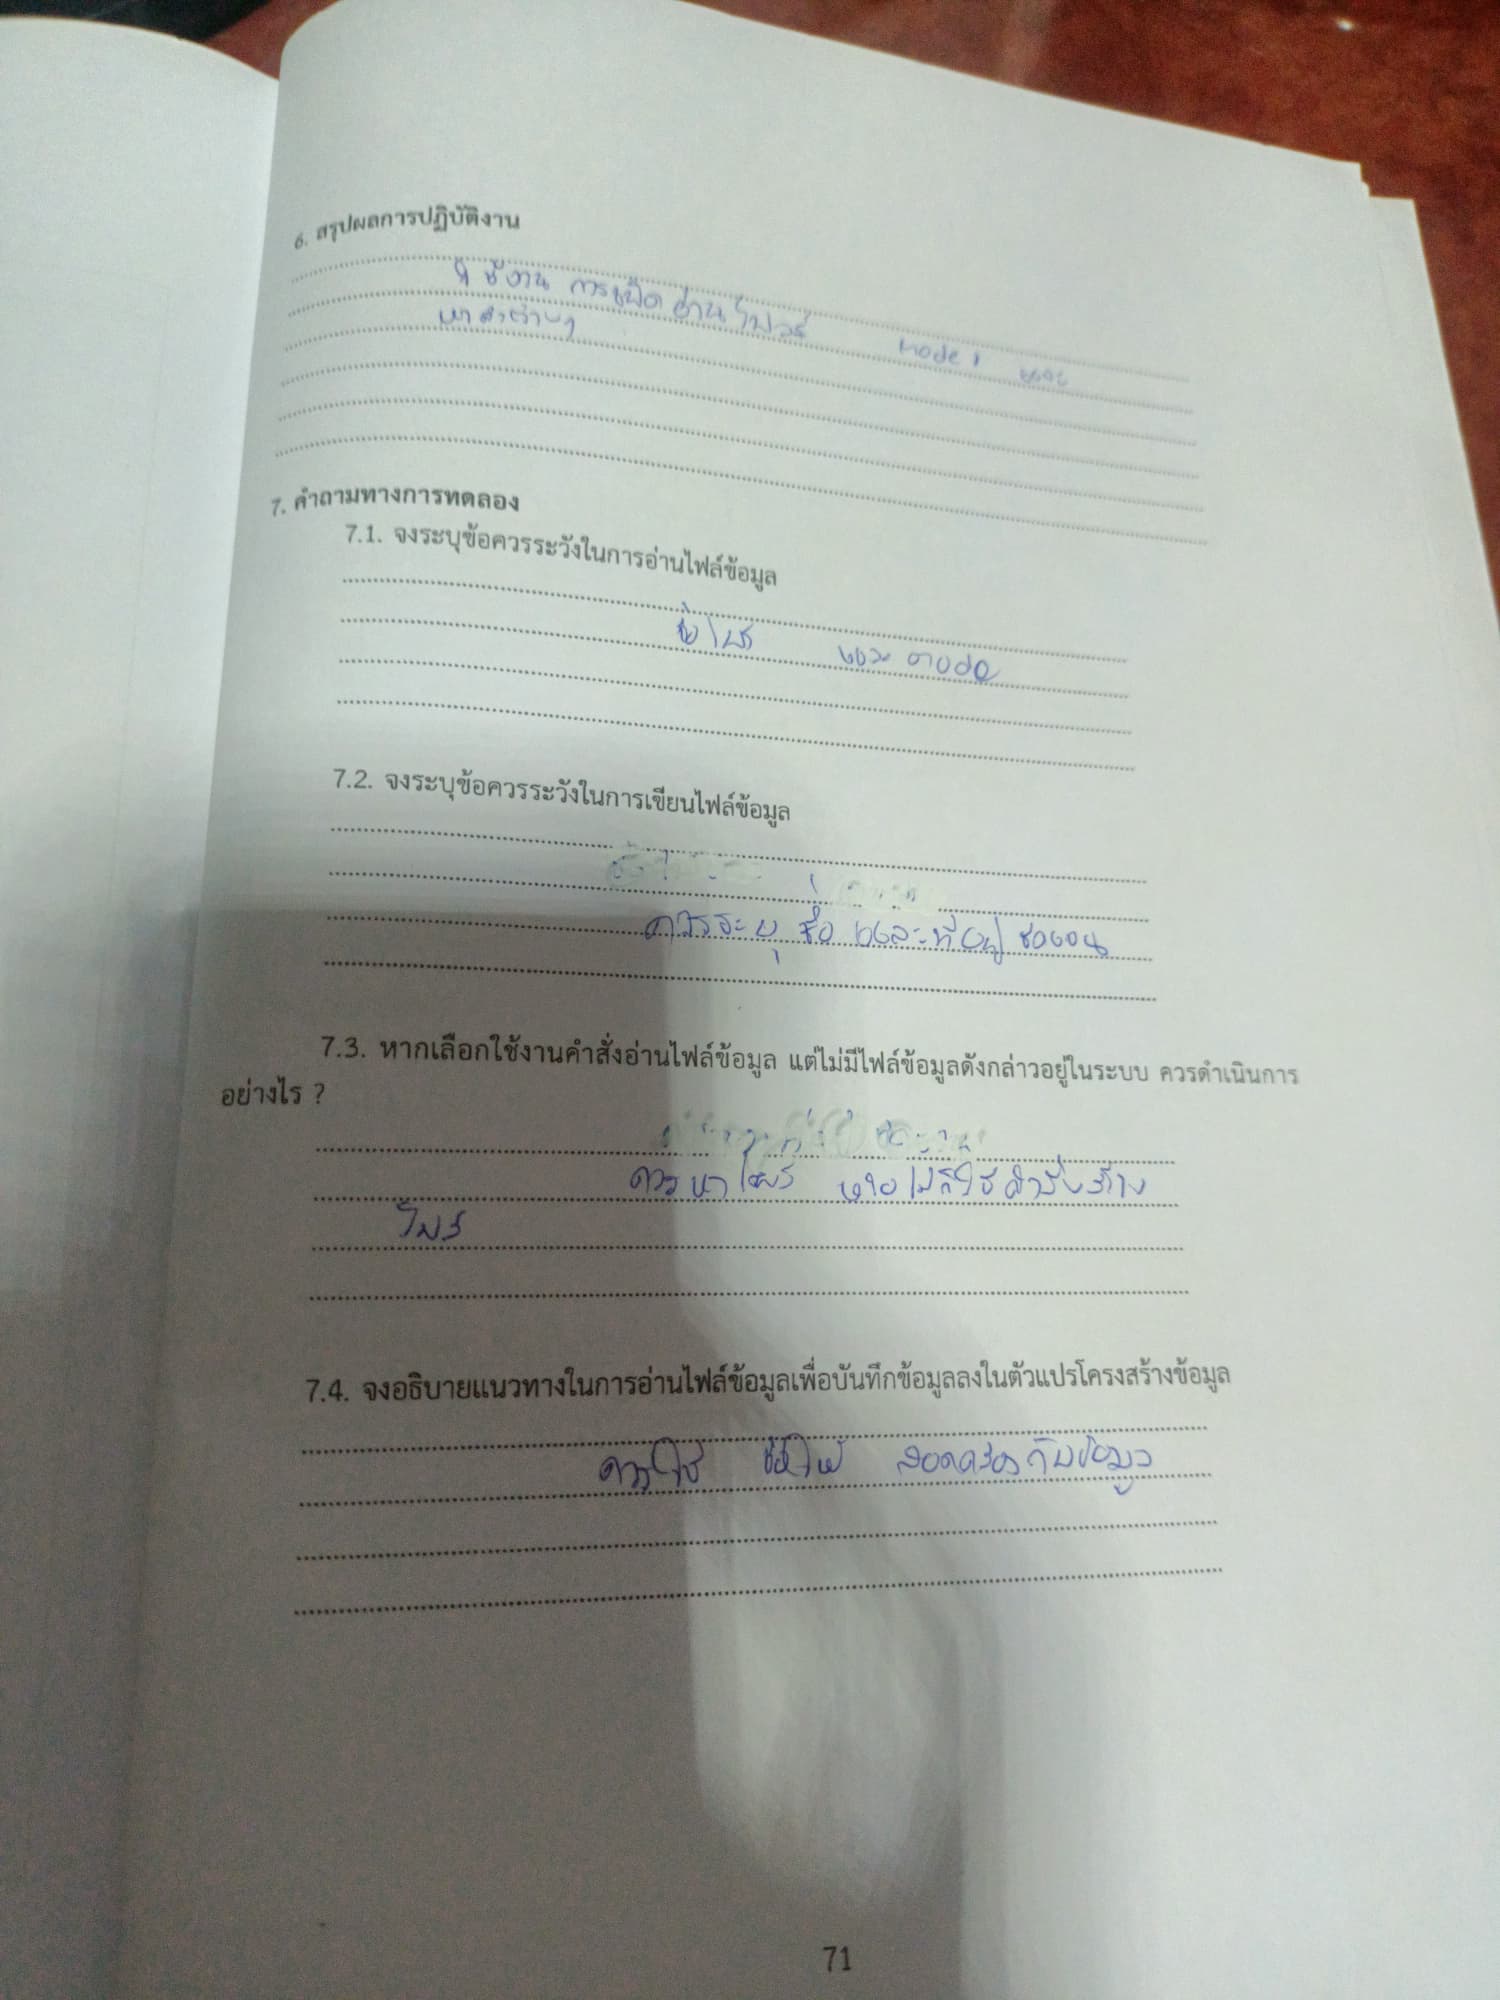 6. สรุปผลการปฏิบัติงาน
ใช้งาน การเปิด อ่าน ไฟล์ mode และ
หาค่าต่างๆ
7. คำถามทางการทดลอง
7.1. จงระบุข้อควรระวังในการอ่านไฟล์ข้อมูล
ชื่อไฟล์ และ
7.2. จงระบุข้อควรระวังในการเขียนไฟล์ข้อมูล
ควรระบุ ชื่อ และที่อยู่
7.3. หากเลือกใช้งานคำสั่งอ่านไฟล์ข้อมูล แต่ไม่มีไฟล์ข้อมูลดังกล่าวอยู่ในระบบ ควรดำเนินการ
อย่างไร ?
ควรหาไฟล์ หรือไม่ก็ใช้คำสั่งสร้าง
ไฟล์
7.4. จงอธิบายแนวทางในการอ่านไฟล์ข้อมูลเพื่อบันทึกข้อมูลลงในตัวแปรโครงสร้างข้อมูล
ควรใช้ ให้ สอดคล้องกับข้อมูล
71